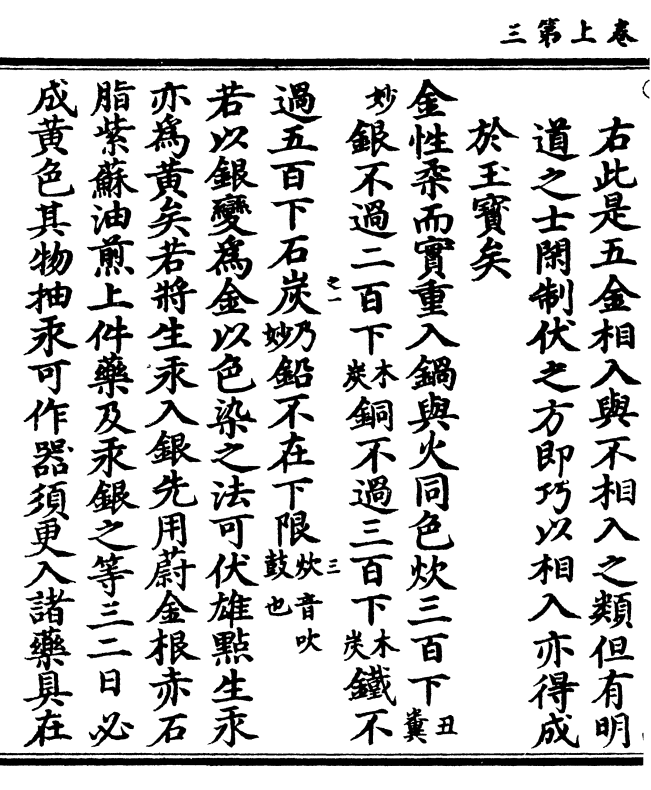 卷上第三
右此是五金相入與不相入之類但有明
道之士閑制伏之方即巧以相入亦得成
於玉寶矣
金性柔而實重入鍋與火同色炊三百下丑糞
妙銀不過二百下木炭銅不過三百下木炭鐵不
過五百下石炭乃妙鉛不在下限炊音吹鼓也
之一
三
若以銀變為金以色染之法可伏雄點生汞
亦為黃矣若將生汞入銀先用蔚金根赤石
脂紫蘇油煎上件藥及汞銀之等三二日必
成黃色其物抽汞可作器須更入諸藥具在